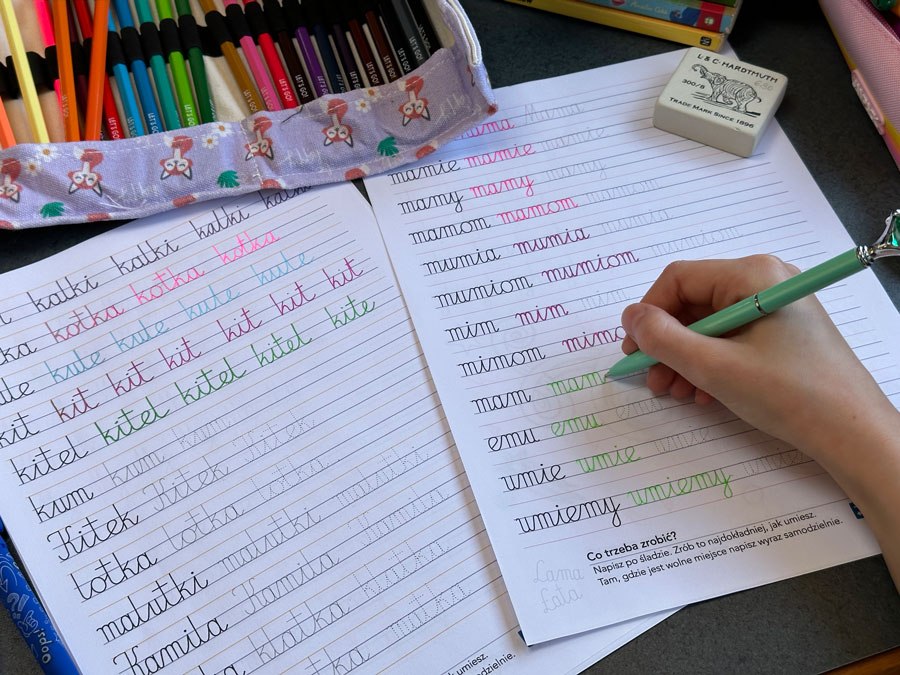 L. & C. HARDTMUTH
300/8
TRADE MARK SINCE 1896
kalki kalki kalki kalki
kotka kotka kotka
kule kule kule kule
kit kit kit kit kit kit kit
kitel kitel kitel kitel kite
kum kum kum
Kitek Kitek Kitek
lotka lotka lotka
malutki malutki malutki
Kamila Kamila Kamila
klatka klatka
mama mama
mamie mamie mamie
mamy mamy mamy
mamom mamom mamom
mumia mumia mumia
mumiom mumiom mumiom
mim mim mim
mimom mimo
mam mam
emu emu emu
umie umie umie
umiemy umiemy umie
Co trzeba zrobić?
Napisz po śladzie. Zrób to najdokładniej, jak umiesz.
Tam, gdzie jest wolne miejsce napisz wyraz samodzielnie.
Lama
Łata
k umiesz.
dzielnie.
oops!